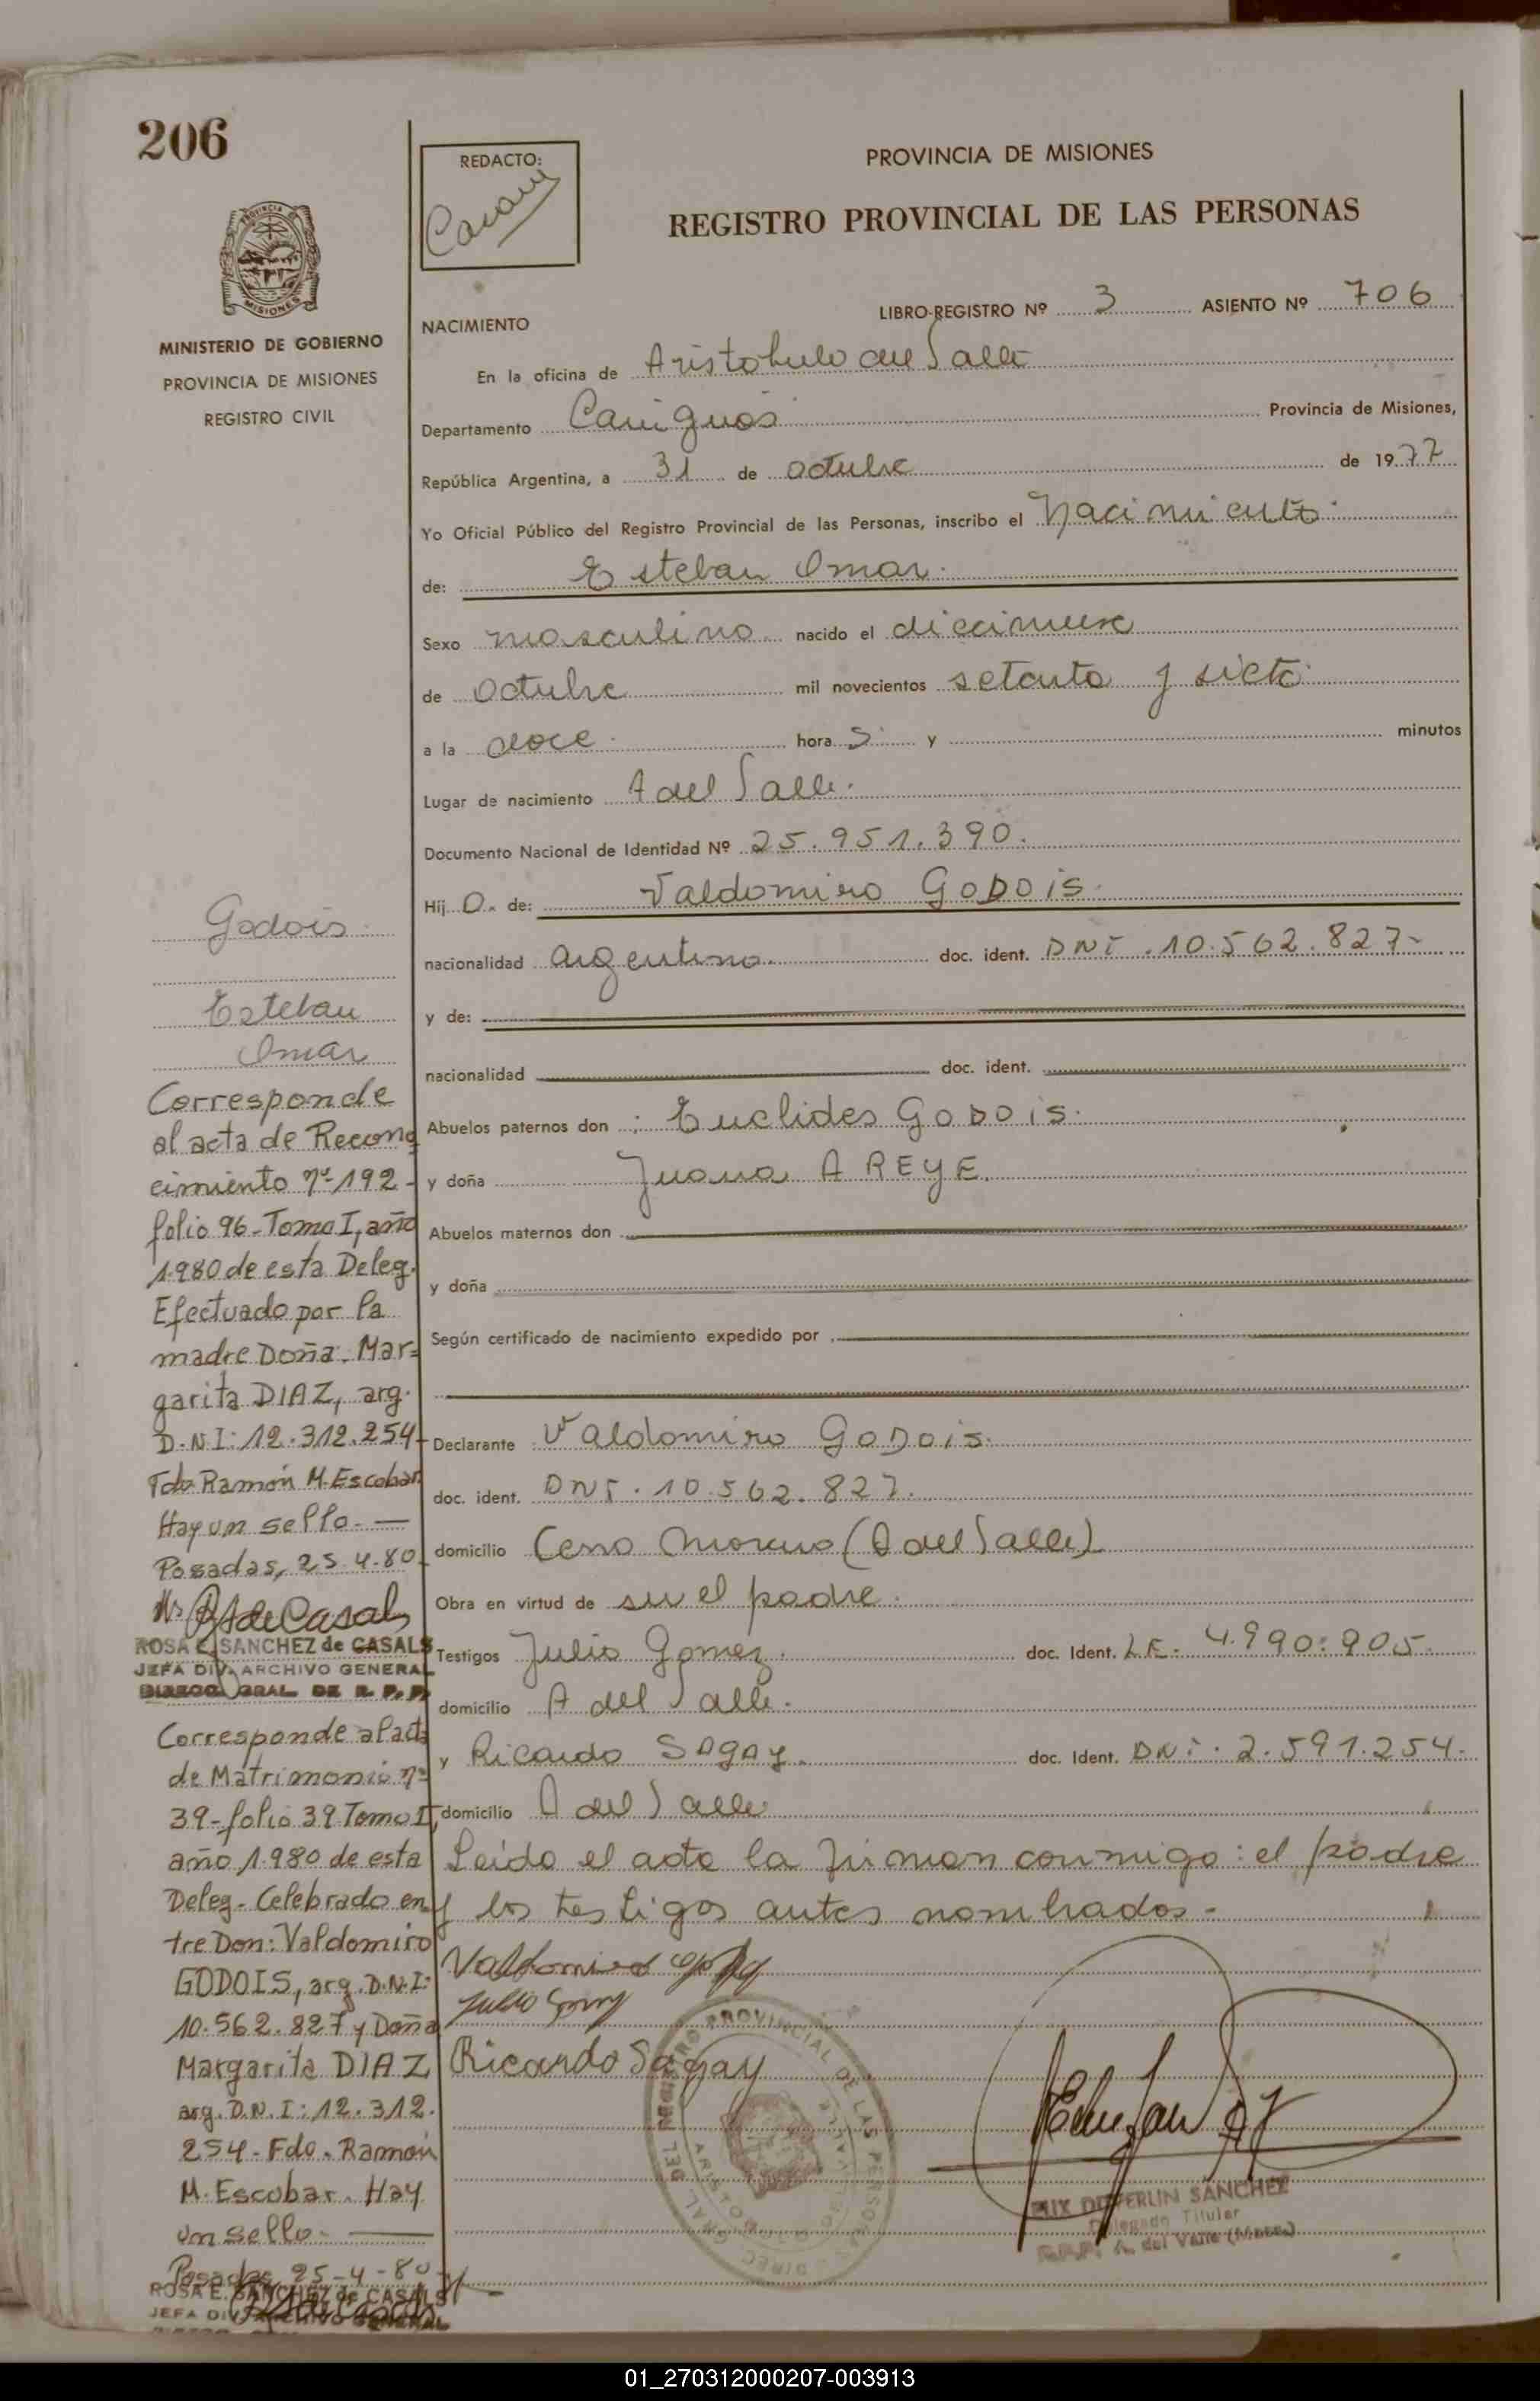 206
PROVINCIA DE MISIONES
REGISTRO PROVINCIAL DE LAS PERSONAS
REDACTO:
MISIONES
MINISTERIO DE GOBIERNO
PROVINCIA DE MISIONES
REGISTRO CIVIL
LIBRO-REGISTRO Nº 3 ASIENTO Nº 706
NACIMIENTO
En la oficina de Aristobulo del Valle
Departamento Cainguás Provincia de Misiones,
República Argentina, a 31 de octubre de 1977
Yo Oficial Público del Registro Provincial de las Personas, inscribo el Nacimiento.
de: Esteban Omar.
Sexo masculino nacido el diecinueve
de octubre mil novecientos setenta y siete.
a la doce. hora s. y minutos
Lugar de nacimiento A del Valle.
Documento Nacional de Identidad Nº 25.951.390.
Hij o. de: Valdomiro GODOIS.
nacionalidad argentino. doc. ident. DNI. 10.562.827-
y de:
nacionalidad doc. ident.
Abuelos paternos don : Euclides GODOIS.
y doña Juana AREYE.
Abuelos maternos don
y doña
Según certificado de nacimiento expedido por
Declarante Valdomiro GODOIS.
doc. ident. DNI. 10.562.827.
domicilio Cerro Moreno (A del Valle)
Obra en virtud de ser el padre.
Testigos Julio Gomez. doc. Ident. LE. 4.990.905.
domicilio A del Valle.
y Ricardo SAGAY. doc. Ident. DNI. 2.591.254.
domicilio A del Valle
Leída el acta la firman conmigo: el padre
y los testigos antes nombrados.-
Ricardo Sagay
REGISTRO PROVINCIAL DE LAS PERSONAS
DIREC. GRAL. DEL
DIPPERLIN SANCHEZ
Delegado Titular
R.P.P. A. del Valle (Mnes.)
Godois.
Esteban
Omar
Corresponde
al acta de Recono
cimiento nº 192-
folio 96-Tomo I, año
1.980 de esta Deleg.
Efectuado por la
madre Doña: Mar=
garita DIAZ, arg.
D.N.I: 12.312.254-
Fdo Ramón M. Escobar
Hay un sello.-
Posadas, 25.4.80.
ROSA E. SANCHEZ de CASALS
JEFA DIV. ARCHIVO GENERAL
DIRECC. GRAL. DE R. P. P.
Corresponde al acta
de Matrimonio nº
39-folio 39 Tomo I,
año 1.980 de esta
Deleg- Celebrado en
tre Don: Valdomiro
GODOIS, arg. D.N.I:
10.562.827 y Doña
Margarita DIAZ
arg. D.N.I: 12.312.
254- Fdo. Ramón
M. Escobar. Hay
un sello.-
Posadas 25-4-80
ROSA E. SANCHEZ de CASALS
JEFA DIV. ARCHIVO GENERAL
01_270312000207-003913